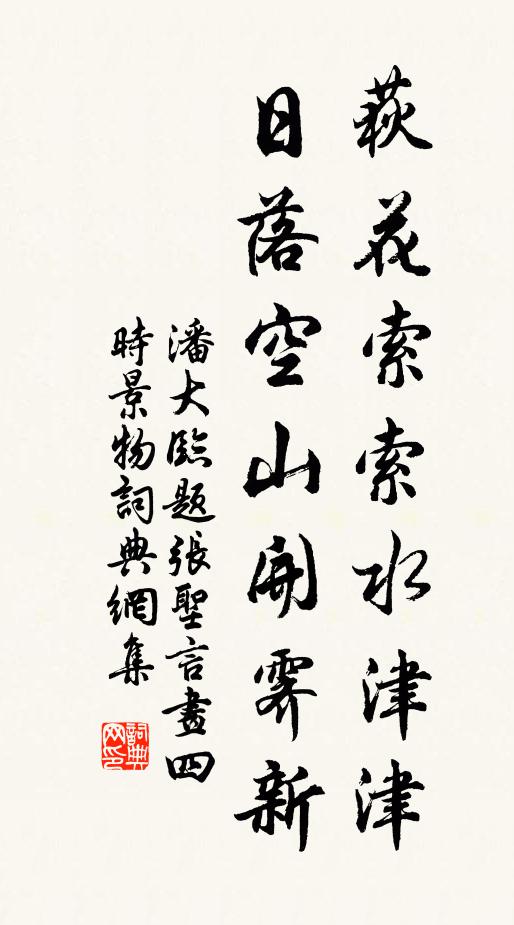 萩花索索水津津
日落空山開霽新
潘大臨題張聖言畫四
時景物詞典網集
詞典網印